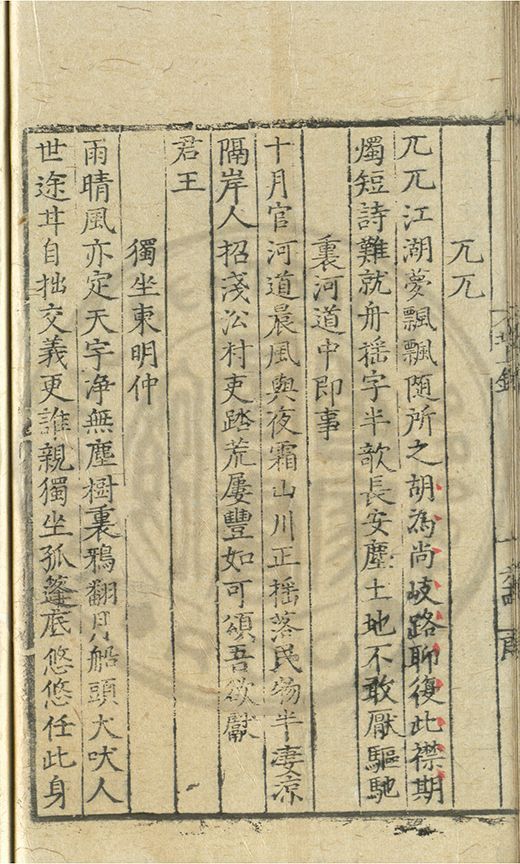 兀兀
兀兀江湖夢飄飄随所之胡為尚岐路聊復此襟期
燭短詩難就舟揺字半欹長安塵土地不敢厭驅馳
裏河道中即事
十月官河道晨風與夜霜山川正揺落民物半凄凉
隔岸人招淺沿村吏踏荒屢豐如可頌吾欲獻
君王
獨坐柬明仲
雨晴風亦定天宇净無塵樹裏鴉翻月船頭犬吠人
世途甘自拙交義更誰親獨坐孤篷底悠悠任此身